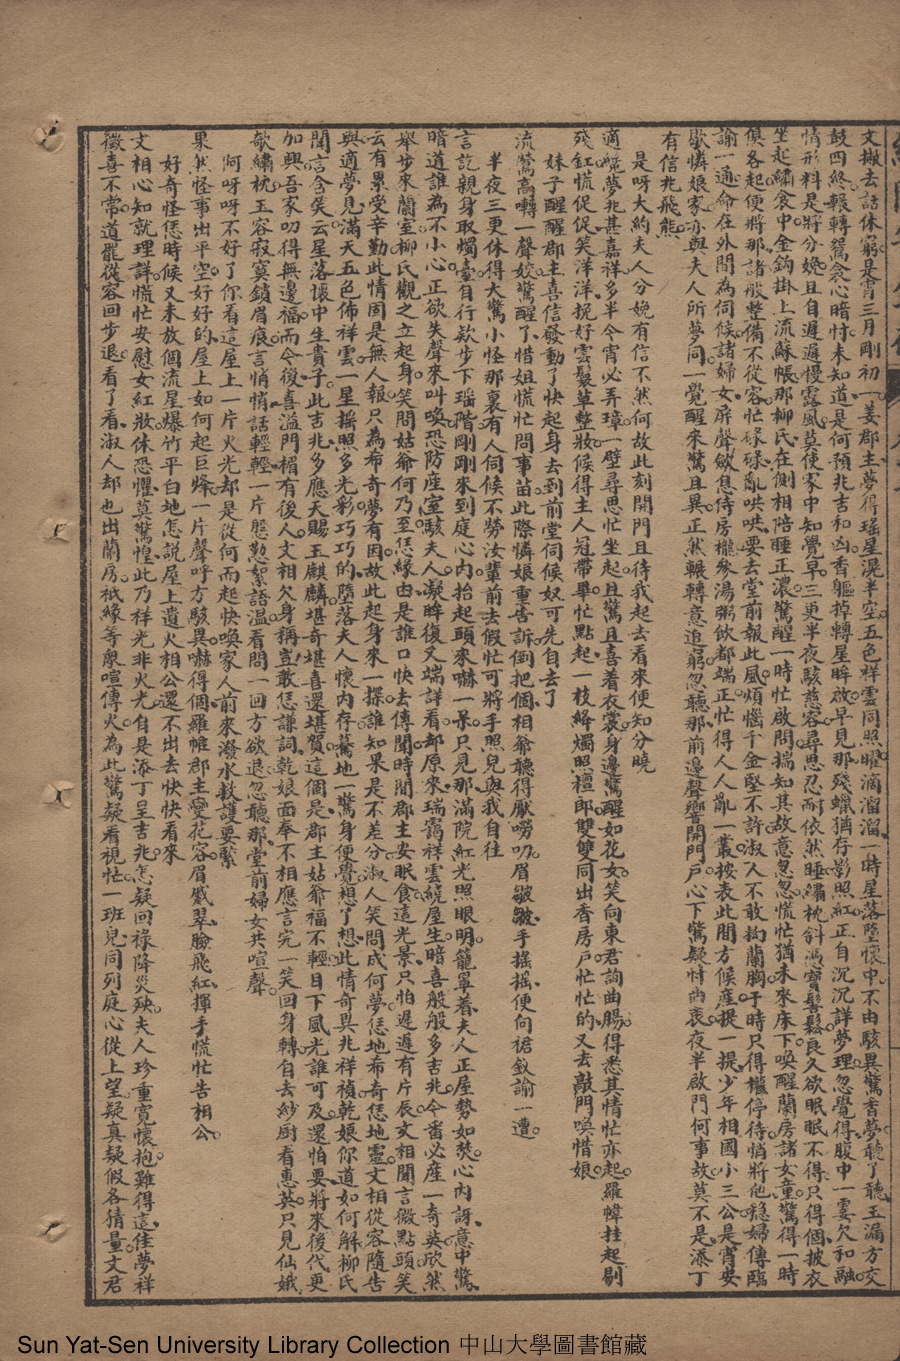 文撤去話休窮是宵三月剛初一姜郡主夢得瑤星滉半空五色祥雲同照曜滴溜溜一時星落墮懷中不由駭異驚香夢聽了聽玉漏方交
鼓四終輾轉鴛衾心暗忖未知道是何預兆吉和凶香軀掉轉星眸啟早見那殘蠟猶存影照紅正自沉沉詳夢理忽覺得腹中一霎欠和融
情形料是將分娩且自遲遲慢露風莫使家中知覺早三更半夜駭慈容尋思忍耐依然睡繡枕斜憑寶髻鬆良久欲眠眠不得只得個披衣
坐起繡衾中金鉤掛上流蘇帳那柳氏在側相陪睡正濃驚醒一時忙啟問揣知其故意忽忽慌忙猶未來床下喚醒蘭房諸女童驚得一時
俟各起便將那諸般整備不從容忙碌碌亂哄哄要去堂前報此風煩惱千金堅不許淑人不敢拗蘭胸于時只得權停待悄將他穩婦傳臨
諭一通命在外間為伺候諸婦女屏聲斂息侍房櫳參湯粥飲都端正忙得人人亂一叢按表此間方候產提一提少年相國小三公是宵安
歇憐娘家亦與夫人所夢同一覺醒來驚且異正然輾轉意追窮忽聽那前邊聲響開門戶心下驚疑忖內衷夜半啟門何事故莫不是添丁
有信兆飛熊
是呀大約夫人分娩有信不然何故此刻開門且待我起去看來便知分曉
適纔夢兆甚嘉祥多半今宵必弄璋一壁尋思忙坐起且驚且喜着衣裳身邊驚醒如花女笑向東君詢曲腸得悉其情忙亦起羅幃挂起剔
殘釭慌促促笑洋洋挽好雲鬟草整妝候得主人冠帶畢忙點起一枝絳燭照檀郎雙雙同出香房戶忙忙的又去敲門喚惜娘
妹子醒醒郡主喜信發動了快起身去到前堂伺候奴可先自去了
流鶯高囀一聲姣驚醒了惜姐慌忙問事苗此際憐娘重告訴倒把個相爺聽得厭嘮叨眉皺皺手搖搖便向裙釵諭一遭
半夜三更休得大驚小怪那裏有人伺候不勞汝輩前去假忙可將手照兒與我自往
言訖親身取燭臺自行欵步下瑤階剛剛來到庭心內抬起頭來嚇一呆只見那滿院紅光照眼明籠罩着夫人正屋勢如焚心內訝意中驚
暗道誰為不小心正欲失聲來叫喚恐防產室駭夫人凝眸復又端詳看却原來瑞靄祥雲繞屋生暗喜般般多吉兆今番必產一奇英欣然
舉步來蘭室柳氏觀之立起身笑問姑爺何乃至恁緣由是誰口快去傳聞時聞郡主安眠食這光景只怕遲遲有片辰文相聞言微點頭笑
云有累受辛勤此情固是無人報只為希奇夢有因故此起身來一探誰知果是不差分淑人笑問成何夢恁地希奇恁地靈文相從容隨告
與適夢見滿天五色佈祥雲一星搖照多光彩巧巧的墮落夫人懷內存驀地一驚身便覺想了想此情奇異兆祥禎乾娘你道如何解柳氏
聞言含笑云星落懷中生貴子此吉兆多應天賜玉麒麟堪奇堪喜還堪賀這個是郡主姑爺福不輕目下風光誰可及還怕要將來後代更
加興吾家叨得無邊福而今後喜溢門楣有後人文相欠身稱豈敢恁謙詞乾娘面奉不相應言完一笑回身轉自去紗廚看惠英只見仙娥
欹繡枕玉容寂寞鎖眉痕言悄悄話輕輕一片慇懃絮語溫看問一回方欲退忽聽那堂前婦女共喧聲
阿呀呀不好了你看這屋上一片火光却是從何而起快喚家人前來潑水救護要緊
果然怪事出平空好好的屋上如何起巨烽一片聲呼方駭異嚇得個羅帷郡主變花容眉蹙翠臉飛紅揮手慌忙告相公
好奇怪恁時候又未放個流星爆竹平白地怎說屋上遺火相公還不出去快快看來
文相心知就理詳慌忙安慰女紅妝休恐懼莫驚惶此乃祥光非火光自是添丁呈吉兆怎疑回祿降災殃夫人珍重寬懷抱難得這佳夢祥
徵喜不常道罷從容回步退看了看淑人却也出蘭房祇緣等衆喧傳火為此驚疑看視忙一班兒同列庭心從上望疑真疑假各猜量文君
Sun Yat-Sen University Library Collection 中山大學圖書館藏